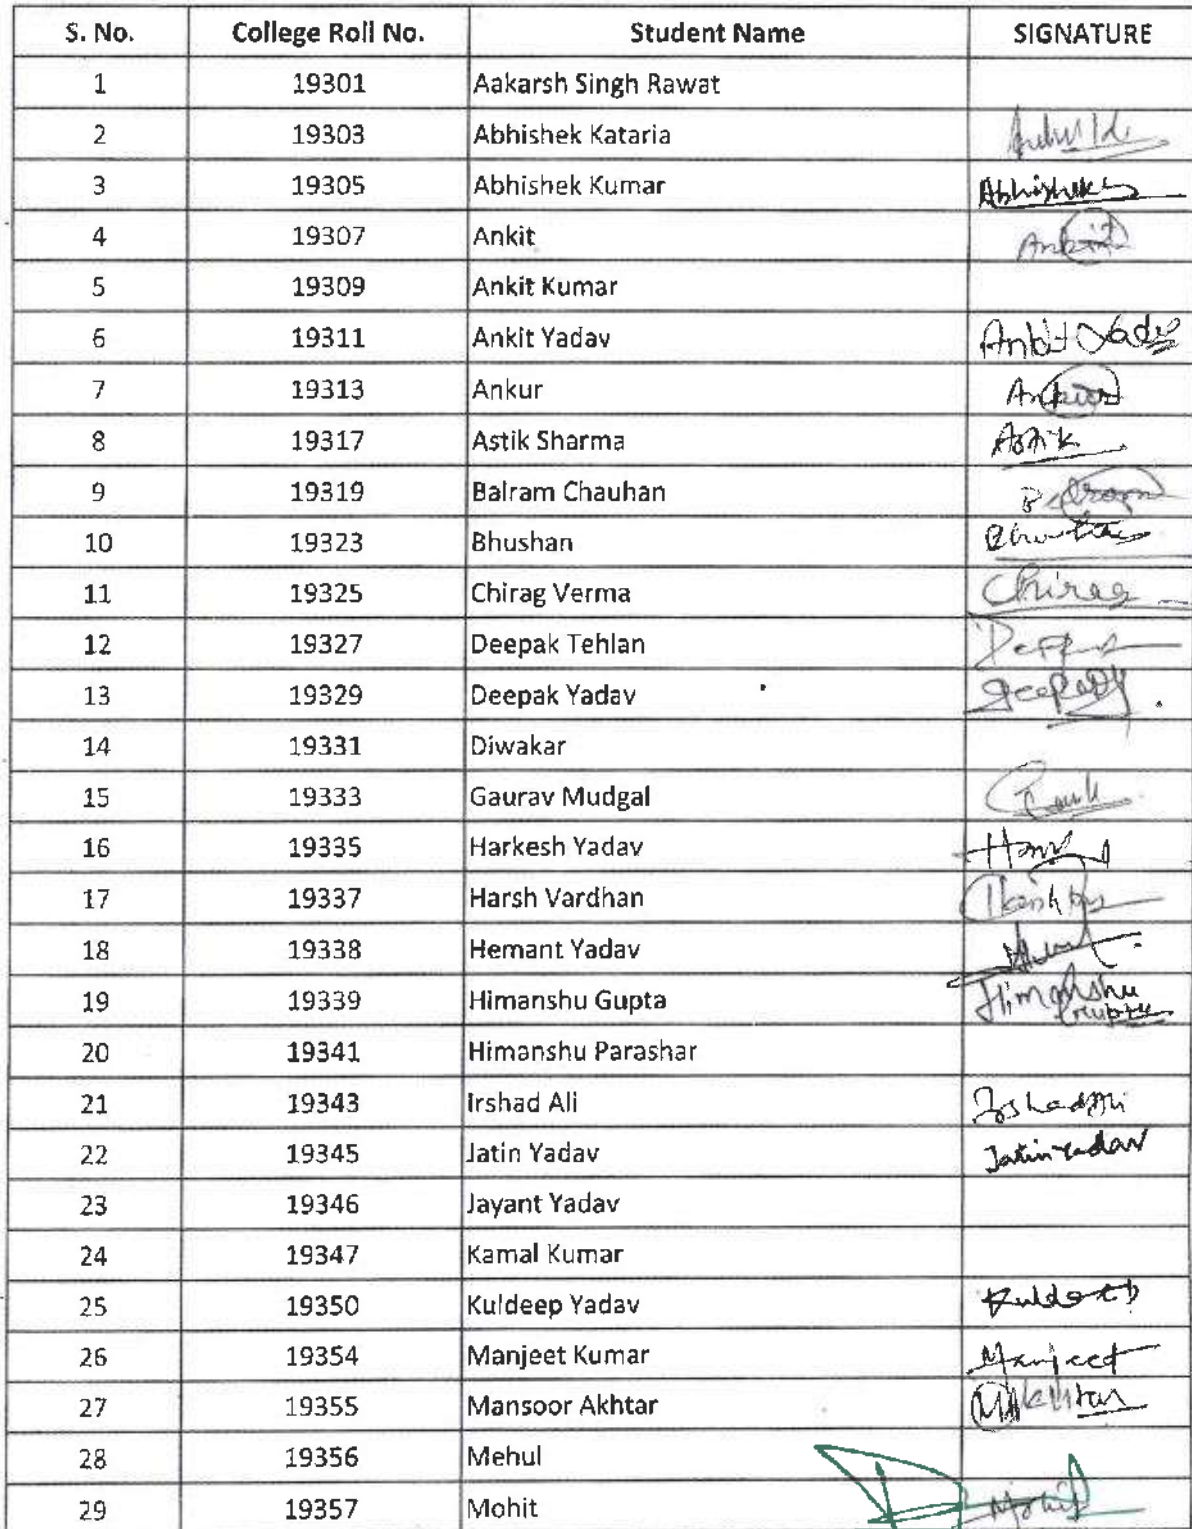 S. No. College Roll No. Student Name SIGNATURE
1 19301 Aakarsh Singh Rawat
2 19303 Abhishek Kataria
3 19305 Abhishek Kumar Abhishek
4 19307 Ankit Ankit
5 19309 Ankit Kumar
6 19311 Ankit Yadav Ankit Yadav
7 19313 Ankur Ankur
8 19317 Astik Sharma Astik
9 19319 Balram Chauhan Balram
10 19323 Bhushan
11 19325 Chirag Verma Chirag
12 19327 Deepak Tehlan
13 19329 Deepak Yadav
14 19331 Diwakar
15 19333 Gaurav Mudgal
16 19335 Harkesh Yadav
17 19337 Harsh Vardhan
18 19338 Hemant Yadav
19 19339 Himanshu Gupta Himanshu Gupta
20 19341 Himanshu Parashar
21 19343 Irshad Ali Irshad Ali
22 19345 Jatin Yadav Jatin Yadav
23 19346 Jayant Yadav
24 19347 Kamal Kumar
25 19350 Kuldeep Yadav Kuldeep
26 19354 Manjeet Kumar Manjeet
27 19355 Mansoor Akhtar MAkhtar
28 19356 Mehul
29 19357 Mohit Mohit